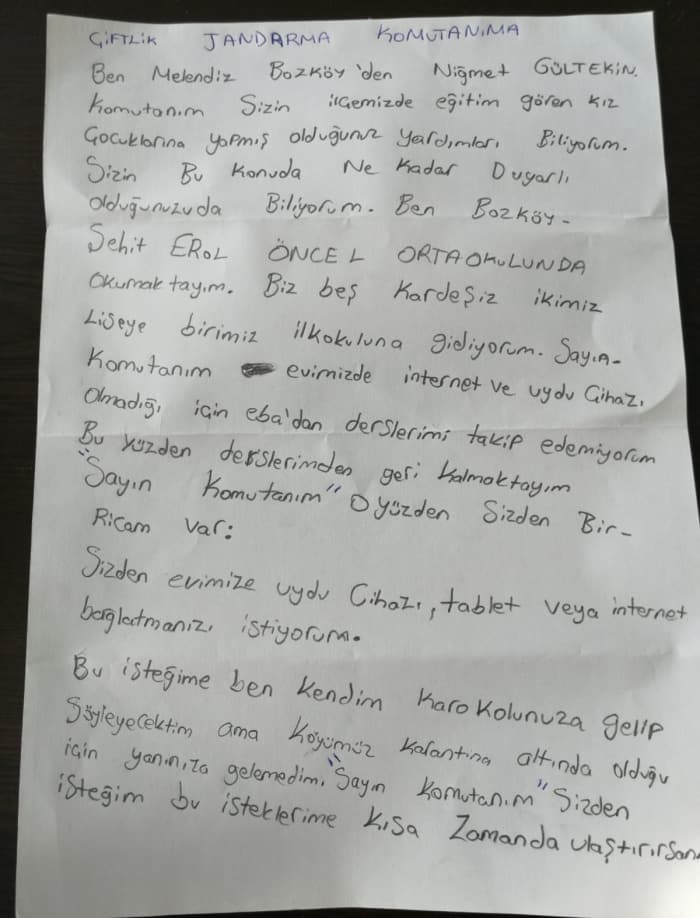 ÇİFTLİK JANDARMA KOMUTANIMA
Ben Melendiz Bozköy'den Niğmet GÜLTEKİN.
Komutanım Sizin ilçemizde eğitim gören kız
Çocuklarına yapmış olduğunuz yardımları Biliyorum.
Sizin Bu konuda Ne kadar Duyarlı
olduğunuzuda Biliyorum. Ben Bozköy-
Şehit EROL ÖNCEL ORTAOKULUNDA
okumaktayım. Biz beş kardeşiz ikimiz
Liseye birimiz ilkokuluna gidiyorum. Sayın-
Komutanım evimizde internet ve uydu Cihazı
Olmadığı için eba'dan derslerimi takip edemiyorum
Bu yüzden derslerimden geri kalmaktayım
"Sayın Komutanım" O yüzden Sizden Bir-
Ricam var:
Sizden evimize uydu Cihazı, tablet veya internet
bağlatmanızı istiyorum.
Bu isteğime ben kendim karokolunuza gelip
Söyleyecektim ama köyümüz karantina altında olduğu
için yanınıza gelemedim. "Sayın komutanım" Sizden
isteğim bu isteklerime kısa Zamanda ulaştırırsanı